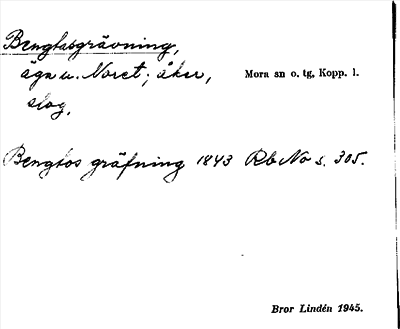 Bengtasgrävning,
äga u. Noret; åker, Mora sn o. tg, Kopp. l.
slog.
Bengtos gräfning 1843 Rb No s. 305.
Bror Lindén 1945.